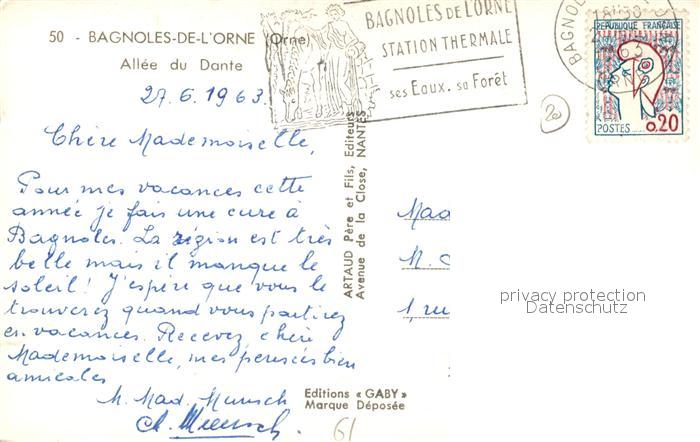 50 - BAGNOLES-DE-L'ORNE (Orne)
Allée du Dante
27.6.1963.
Chère Mademoiselle,
Pour mes vacances cette
année je fais une cure à
Bagnoles. La région est très
belle mais il manque le
soleil! J'espère que vous le
trouverez quand vous partirez
en vacances. Recevez, chère
Mademoiselle, mes pensées bien
amicales
M. Mad. Munsch
BAGNOLES DE L'ORNE
STATION THERMALE
ses Eaux. sa Forêt
BAGNOL
18H30
REPUBLIQUE FRANÇAISE
POSTES 0,20
20
ARTAUD Père et Fils, Editeurs
Avenue de la Close, NANTES
Mad
M. C
1, ru
privacy protection
Datenschutz
Editions « GABY »
Marque Déposée
61